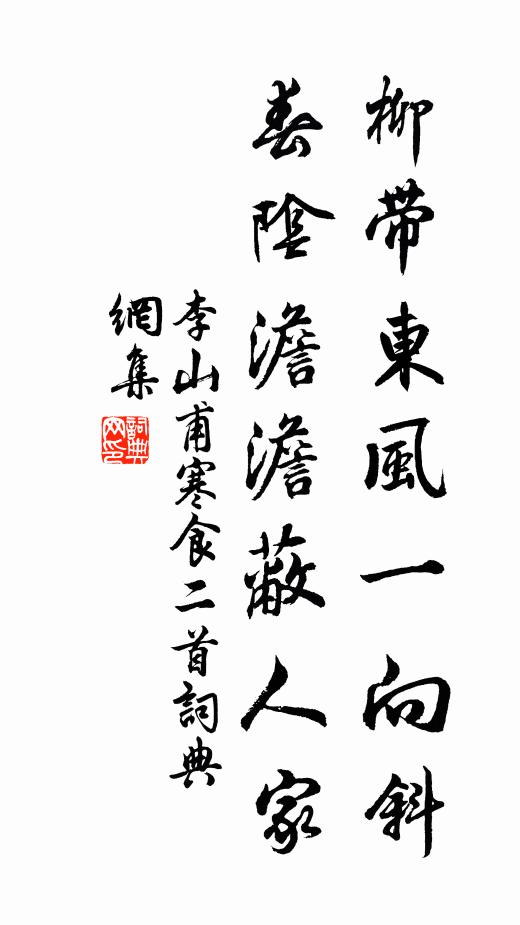 柳帶東風一向斜
春陰澹澹蔽人家
李山甫寒食二首詞典
網集
詞典网印